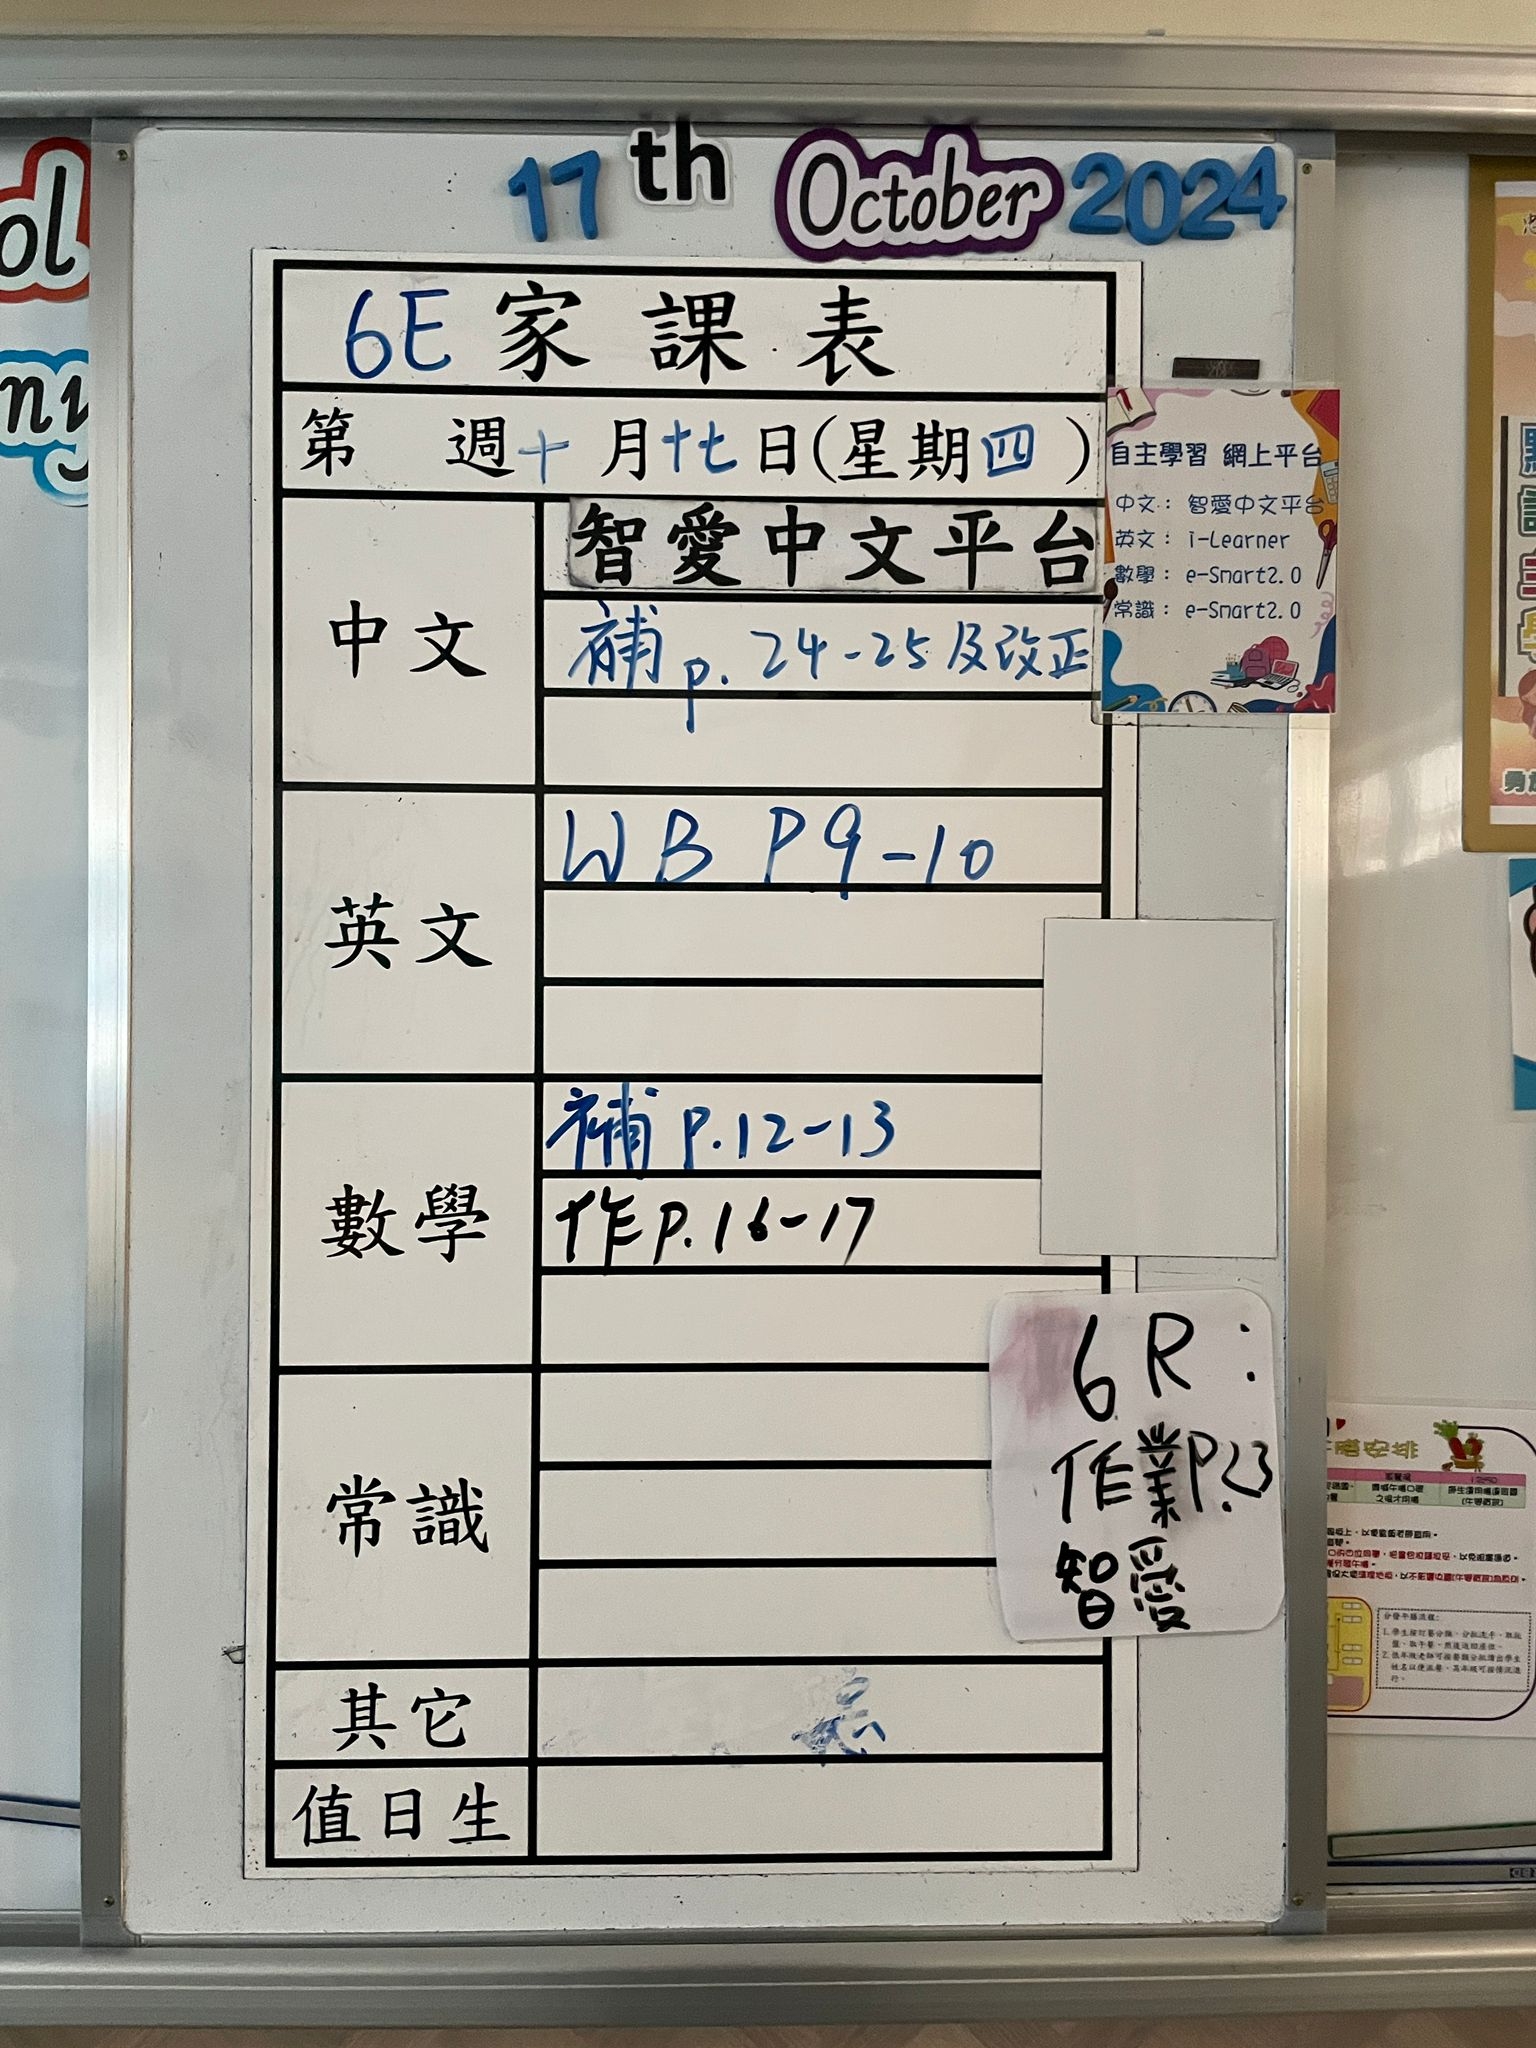 17th October 2024
6E 家課表
第 週十月十七日(星期四)
中文
智愛中文平台
補 p. 24-25 及改正
英文
WB P9-10
數學
補 P.12-13
作 P.16-17
常識
其它
值日生
自主學習 網上平台
中文： 智愛中文平台
英文： i-Learner
數學： e-Smart2.0
常識： e-Smart2.0
6R:
作業P.23
智愛
ol
ny
安排
分發午膳流程: